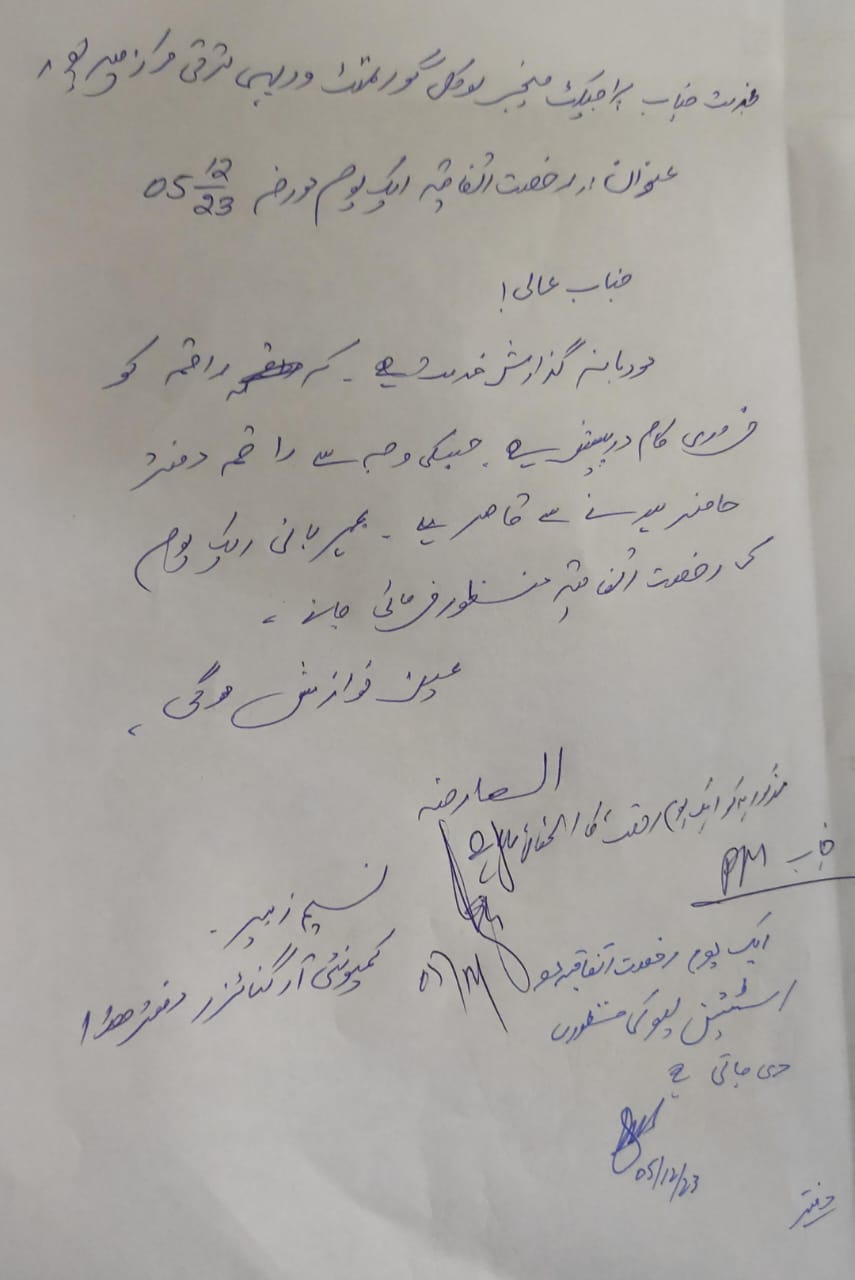 بخدمت جناب پراجیکٹ منیجر لوکل گورنمنٹ ودیہی ترقی مرکز میرپور
عنوان :۔ رخصت اتفاقیہ ایک یوم مورخہ 05/12/23
جناب عالی!
مودبانہ گذارش خدمت ہے ۔ کہ راقمہ کو
ضروری کام درپیش ہے ۔ جسکی وجہ سے راقمہ دفتر
حاضر ہونے سے قاصر ہے ۔ بمہربانی ایک یوم
کی رخصت اتفاقیہ منظور فرمائی جائے ،
عین نوازش ہوگی ،
العارضہ
نسیم زبیر ۔
کمیونٹی آرگنائزر دفتر ھذا
مذکوریہ کو ایک یوم رخصت کا استحقاق ہے
05/12
جناب PM
ایک یوم رخصت اتفاقیہ مع
اسٹیشن لیو کی منظوری
دی جاتی ہے
05/12/23
دفتر